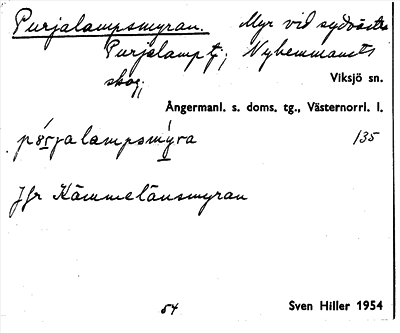 Purjalampsmyran. Myr vid sydvästra
Purjalamptj; Nybemmanets
skog;
Viksjö sn.
Ångermanl. s. doms. tg., Västernorrl. l.
lampsmýra 135
Jfr Kämmelänsmyran
54 Sven Hiller 1954